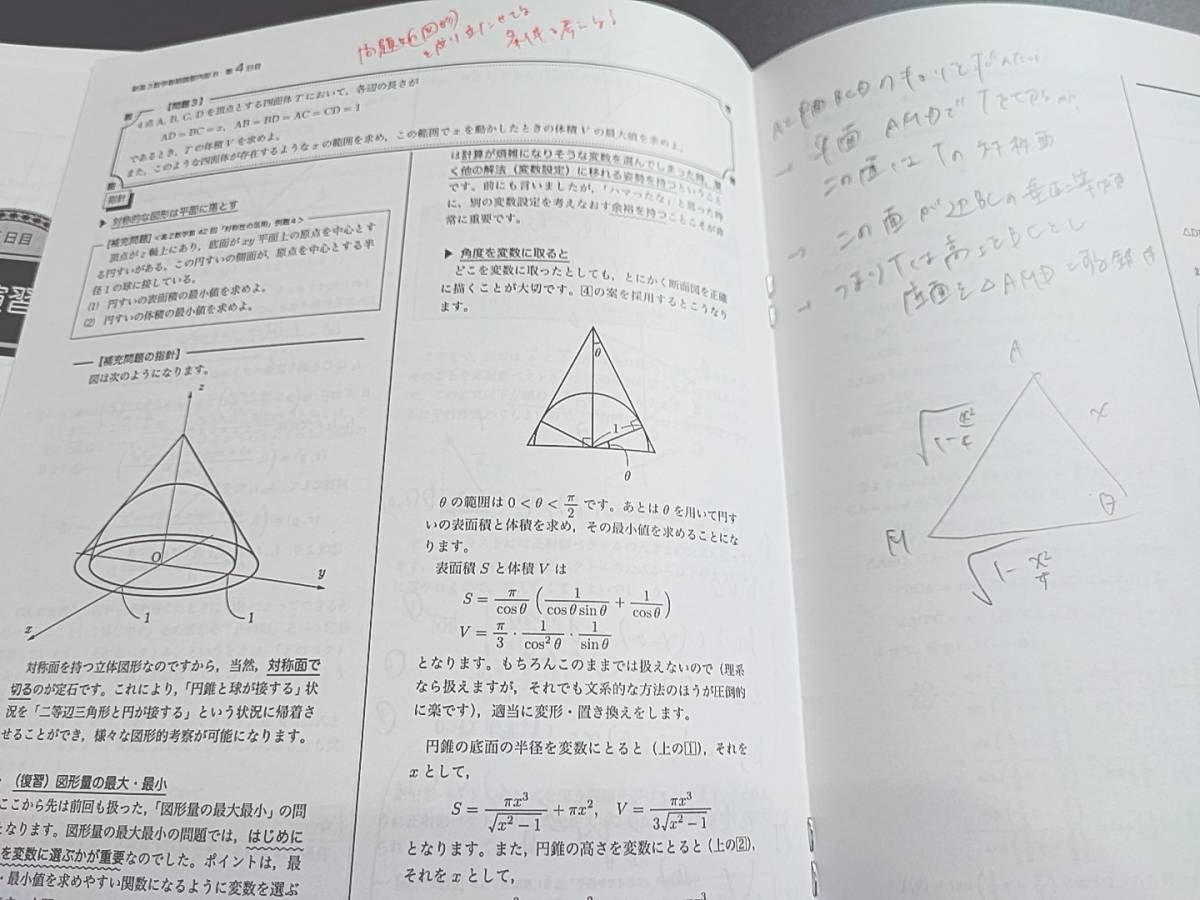 第4日目
【問題3】
4点A, B, C, Dを頂点とする四面体Tにおいて，各辺の長さが
AD=BC=x, AB=BD=AC=CD=1
であるとき，Tの体積Vを求めよ。
また，このような四面体が存在するようなxの範囲を求め，この範囲でxを動かしたときの体積Vの最大値を求めよ。
指針
▶ 対称的な図形は平面に落とす
【補充問題】
頂点がz軸上にあり，底面がxy平面上の原点を中心とす
る円すいがある。この円すいの側面が，原点を中心とする半
径1の球に接している。
(1) 円すいの表面積の最小値を求めよ。
(2) 円すいの体積の最小値を求めよ。
【補充問題の指針】
図は次のようになります。
z
O
y
1
1
x
対称面を持つ立体図形なのですから，当然，対称面で
切るのが定石です。これにより，「円錐と球が接する」状
況を「二等辺三角形と円が接する」という状況に帰着さ
せることができ，様々な図形的考察が可能になります。
(復習)図形量の最大・最小
ここから先は前回も扱った，「図形量の最大最小」の問
となります。図形量の最大最小の問題では，はじめに
を変数に選ぶかが重要なのでした。ポイントは，最
・最小値を求めやすい関数になるように変数を選ぶ
は計算が煩雑になりそうな変数を選んでしまった時，
く他の解法（変数設定）に移れる姿勢を持つということ
です。前にも言いましたが，「ハマったな」と思った時
に，別の変数設定を考えなおす余裕を持つことこそが非
常に重要です。
▶ 角度を変数に取ると
どこを変数に取ったとしても，とにかく断面図を正確
に描くことが大切です。[4]の案を採用するとこうなり
ます。
θ
1
θ
θの範囲は 0<θ<π/2 です。あとはθを用いて円す
いの表面積と体積を求め，その最小値を求めることにな
ります。
表面積Sと体積Vは
S=π/cosθ (1/(cosθsinθ)+1/cosθ)
V=π/3・1/cos²θ・1/sinθ
となります。もちろんこのままでは扱えないので（理系
なら扱えますが，それでも文系的な方法のほうが圧倒的
に楽です），適当に変形・置き換えをします。
円錐の底面の半径を変数にとると（上の[1]），それを
xとして，
S=πx³/√(x²−1)+πx², V=πx³/(3√(x²−1))
となります。また，円錐の高さを変数にとると（上の[2]），
それをxとして，
平面 AMDで
この面はTの対称面
この面が辺BCの垂直二等分面
つまりTは高さをBCとし
底面を△AMD
A
√(1−x²/4)
x
M
√(1−x²/4)